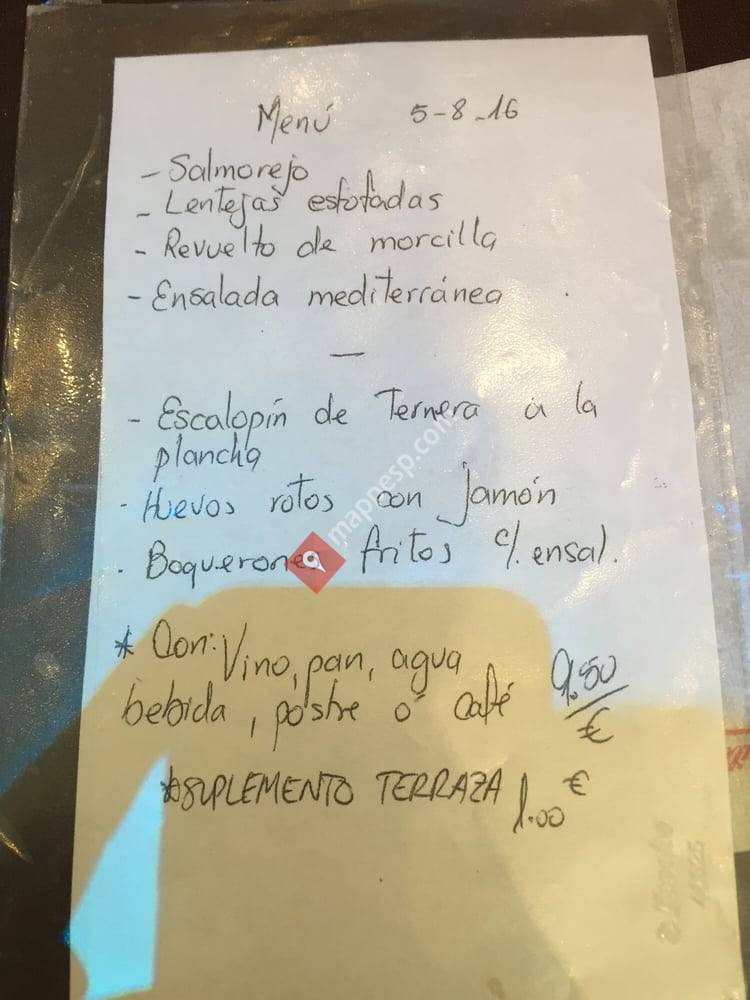 Menú 5-8-16
- Salmorejo
- Lentejas estofadas
- Revuelto de morcilla
- Ensalada mediterránea
—
- Escalopín de Ternera a la
plancha
- Huevos rotos con jamón
- Boquerones fritos c/. ensal.
* Con: Vino, pan, agua
bebida, postre ó café 9.50 €
*SUPLEMENTO TERRAZA 1.00 €
mappesp.com